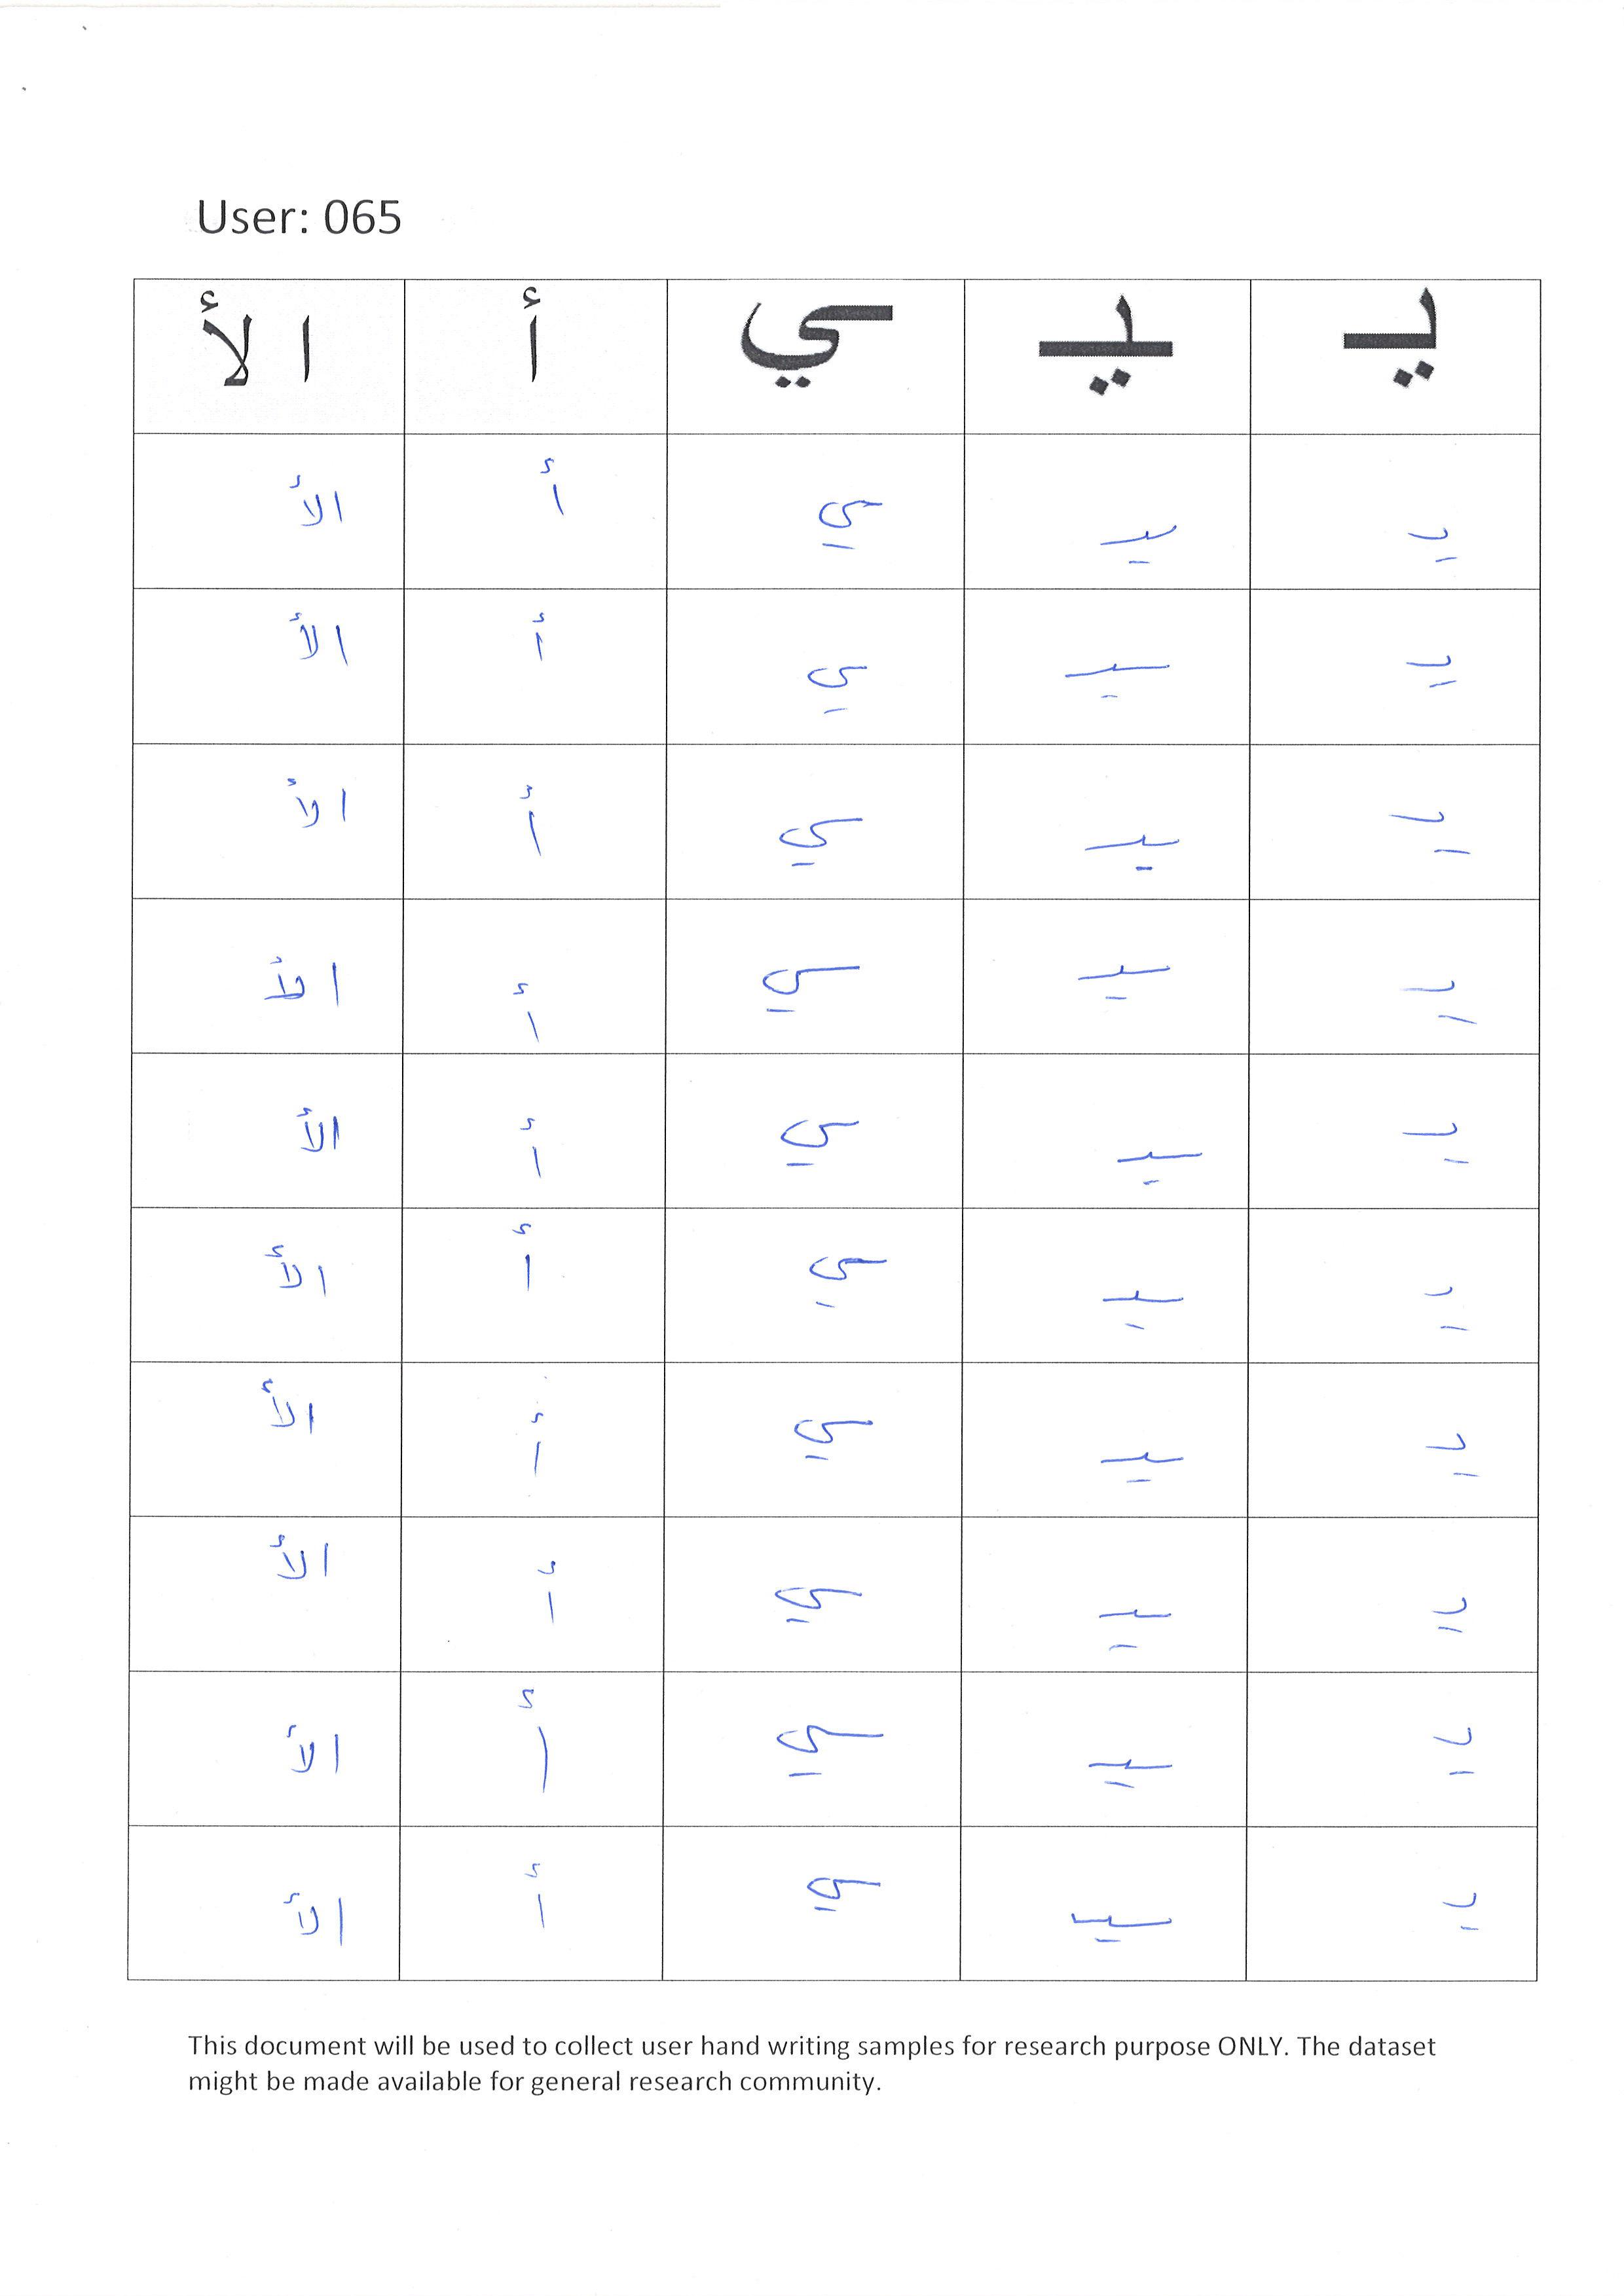 User: 065
يـ ـيـ ـي أ الأ
يـ ـيـ ـي أ الأ
يـ ـيـ ـي أ الأ
يـ ـيـ ـي أ الأ
يـ ـيـ ـي أ الأ
يـ ـيـ ـي أ الأ
يـ ـيـ ـي أ الأ
يـ ـيـ ـي أ الأ
يـ ـيـ ـي أ الأ
يـ ـيـ ـي أ الأ
يـ ـيـ ـي أ الأ
This document will be used to collect user hand writing samples for research purpose ONLY. The dataset
might be made available for general research community.